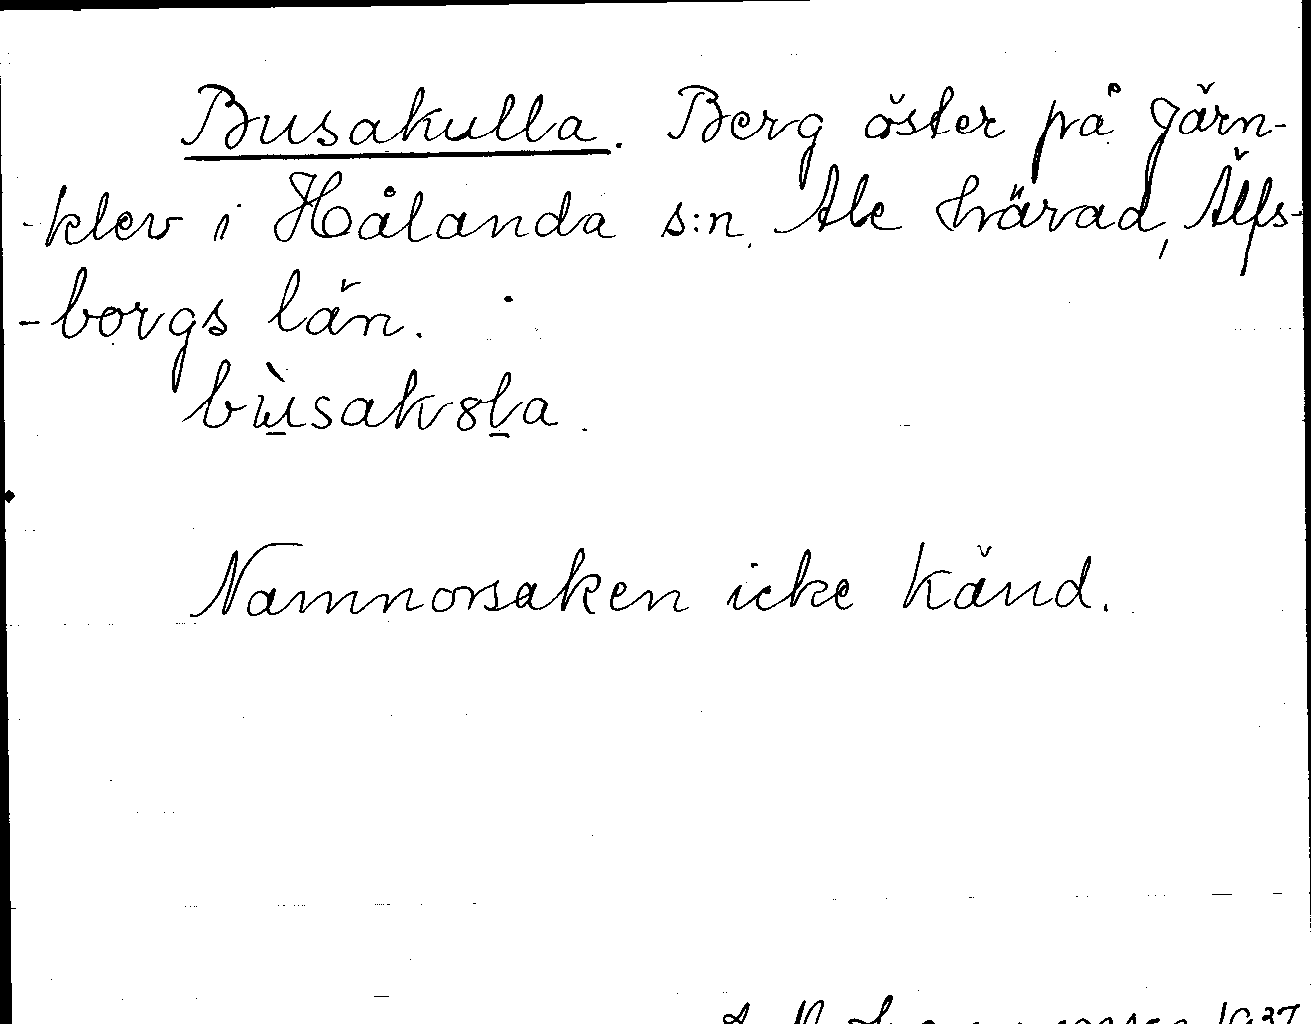 Busakulla. Berg öster på Järn-
-klev i Hålanda s:n, Ale härad, Älfs-
-borgs län.
bu̠̇̀sakɞl̠a.
Namnorsaken icke känd.
1937